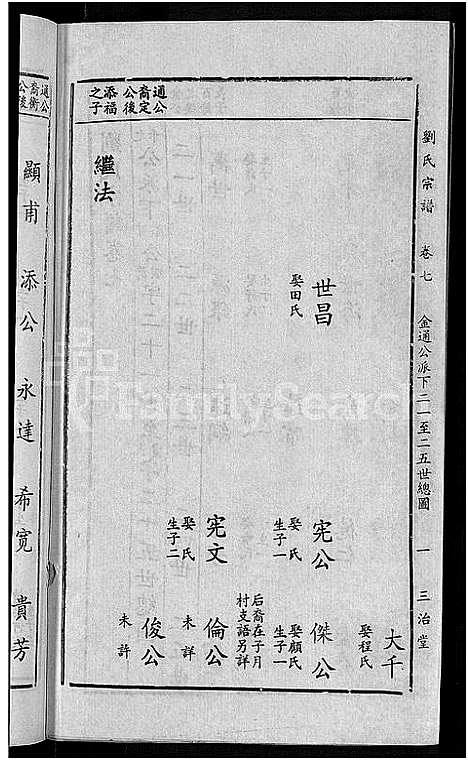 劉氏宗譜 卷七 金通公派下二一至二五世總圖 一 三治堂
大千
娶程氏
世昌
娶田氏
宪公
娶 氏
生子一
傑公
娶顏氏
生子一
后裔在子月
村支語另詳
宪文
娶 氏
生子二
倫公
未詳
俊公
未詳
通公
裔定
公後
添福
之子
繼法
通公
裔衡
公後
顯甫 添公 永達 希宽 貴芳
FamilySearch